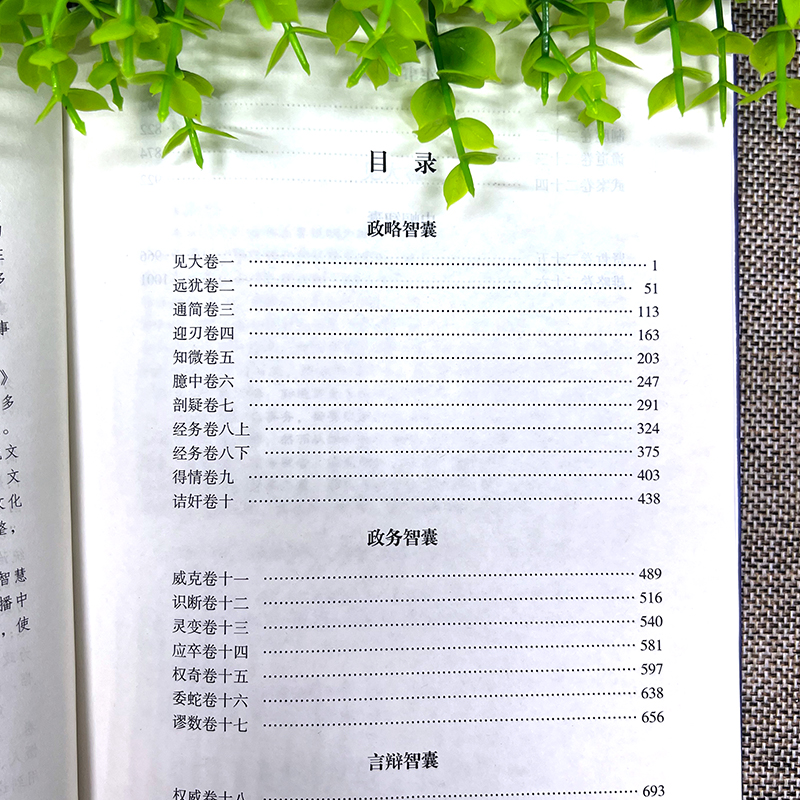 目 录
政略智囊
见大卷一 1
远犹卷二 51
通简卷三 113
迎刃卷四 163
知微卷五 203
臆中卷六 247
剖疑卷七 291
经务卷八上 324
经务卷八下 375
得情卷九 403
诘奸卷十 438
政务智囊
威克卷十一 489
识断卷十二 516
灵变卷十三 540
应卒卷十四 581
权奇卷十五 597
委蛇卷十六 638
谬数卷十七 656
言辩智囊
权威卷十八 693
事
》
多
。
文
文
文化
整，
智慧
播中
，使